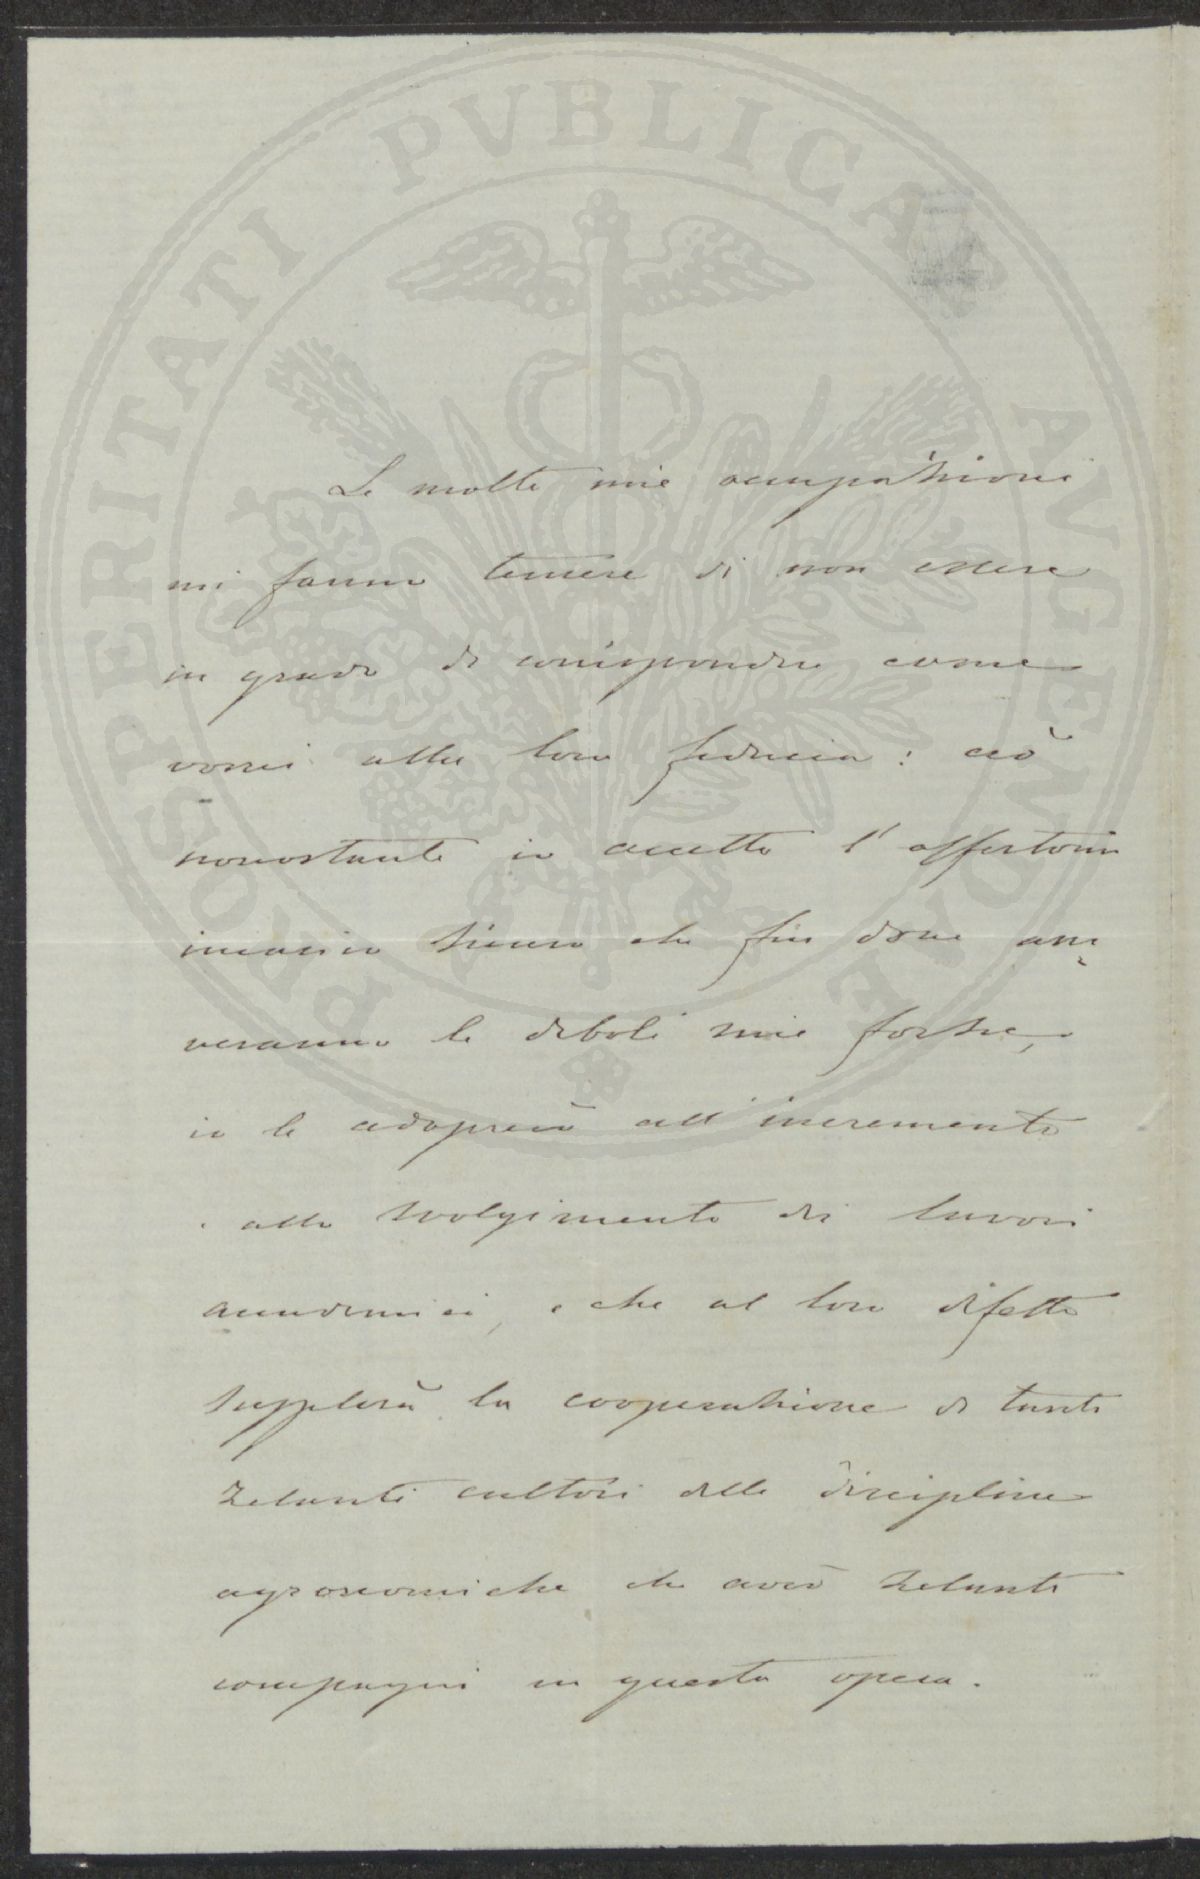 PROSPERITATI PVBLICAE AVGENDAE
Le molte mie occupazioni
mi fanno temere di non essere
in grado di corrispondere come
vorrei alla loro fiducia: ciò
nonostante io accetto l'offertomi
incarico sicuro che fin dove ar=
veranno le deboli mie forze,
io le adoprerò all'incremento
e allo svolgimento di lavori
accademici, e che al loro difetto
supplirà la cooperazione di tanti
zelanti cultori delle discipline
agronomiche che avrò zelanti
compagni in questa opera.